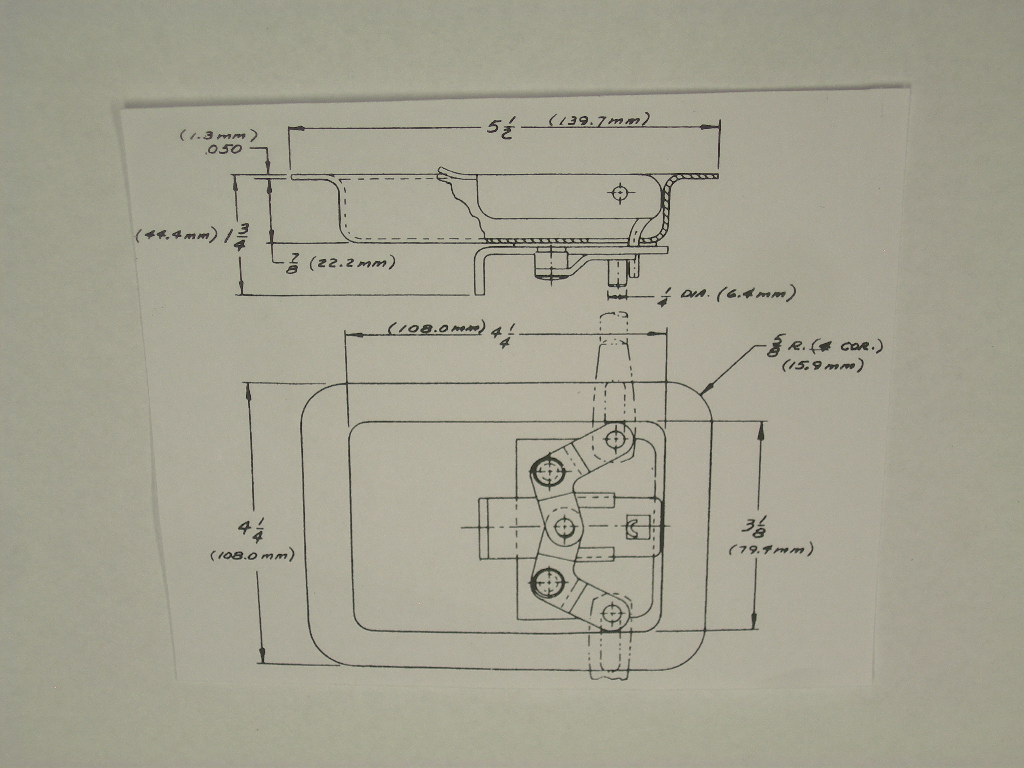 5 1/2 (139.7mm)
(1.3mm)
.050
(44.4mm) 1 3/4
7/8 (22.2mm)
1/4 DIA. (6.4mm)
(108.0mm) 4 1/4
5/8 R. (4 COR.)
(15.9mm)
4 1/4
(108.0mm)
3 1/8
(79.4mm)